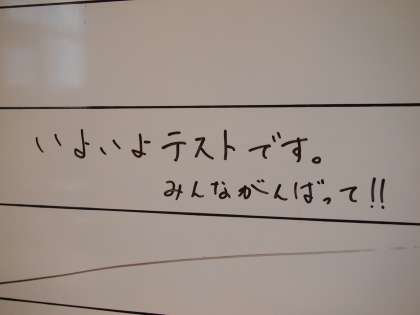 いよいよテストです。
みんながんばって!!